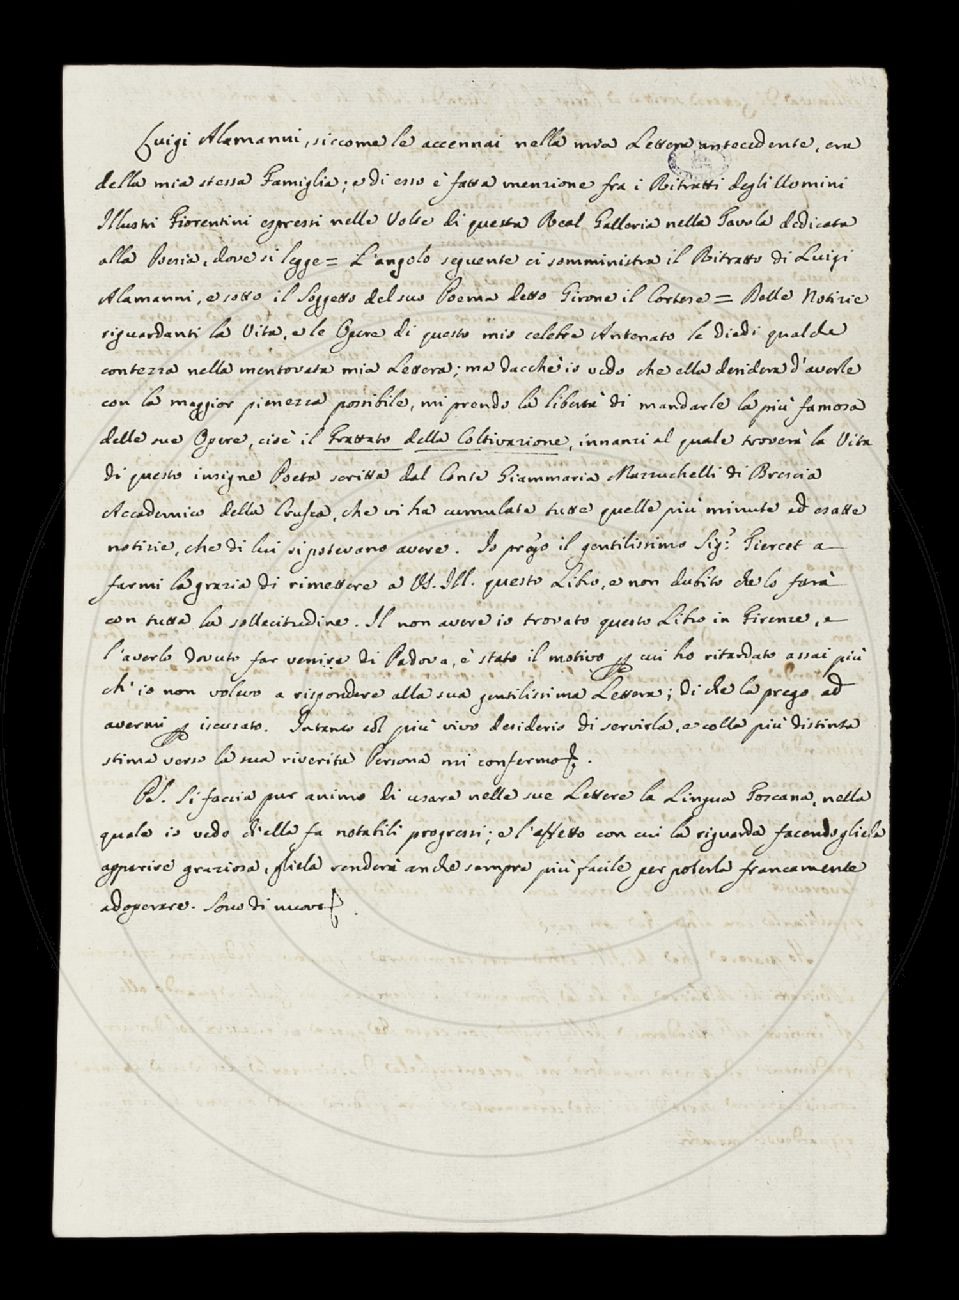 Luigi Alamanni, siccome le accennai nella mia Lettera antecedente, era
della mia stessa Famiglia; e di esso è fatta menzione fra i Ritratti degli Uomini
Illustri Fiorentini espressi nelle Volte di questa Real Galleria nella Tavola dedicata
alla Poesia, dove si legge = L'angolo seguente ci somministra il Ritratto di Luigi
Alamanni, e sotto il Soggetto del suo Poema detto Girone il Cortese = Delle Notizie
riguardanti la Vita, e le Opere di questo mio celebre Antenato le diedi qualche
contezza nella mentovata mia Lettera; ma dacchè io vedo che ella desidera d'averle
con la maggior pienezza possibile, mi prendo la libertà di mandarle la più famosa
delle sue Opere, cioè il Trattato della Coltivazione, innanzi al quale troverà la Vita
di questo insigne Poeta scritta dal Conte Giammaria Mazzuchelli di Brescia
Accademico della Crusca, che vi ha cumulate tutte quelle più minute ed esatte
notizie, che di lui si potevano avere. Io prego il gentilissimo Sig.r Piercot a
farmi la grazia di rimettere a VS. Ill. questo Libro, e non dubito che lo farà
con tutta la sollecitudine. Il non avere io trovato questo Libro in Firenze, e
l'averlo dovuto far venire di Padova, è stato il motivo p cui ho ritardato assai più
ch'io non volevo a rispondere alla sua gentilissima Lettera; di che la prego ad
avermi p iscusato. Intanto col più vivo desiderio di servirla, e colla più distinta
stima verso la sua riverita Persona mi confermo.
PS. Si faccia pur animo di usare nelle sue Lettere la Lingua Toscana, nella
quale io vedo ch'ella fa notabili progressi; e l'affetto con cui la riguarda facendogliela
apparire graziosa, gliela renderà anche sempre più facile per poterla francamente
adoperare. Sono di nuovo.